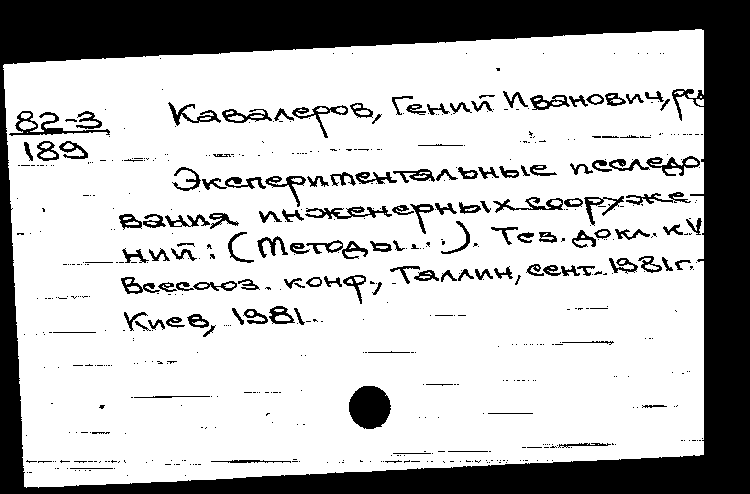 82-3
189
Кавалеров, Гений Иванович, ред
Экспериментальные исследо-
вания инженерных сооруже-
ний: (Методы...). Тез. докл. к V
Всесоюз. конф., Таллин, сент. 1981г. -
Киев, 1981.